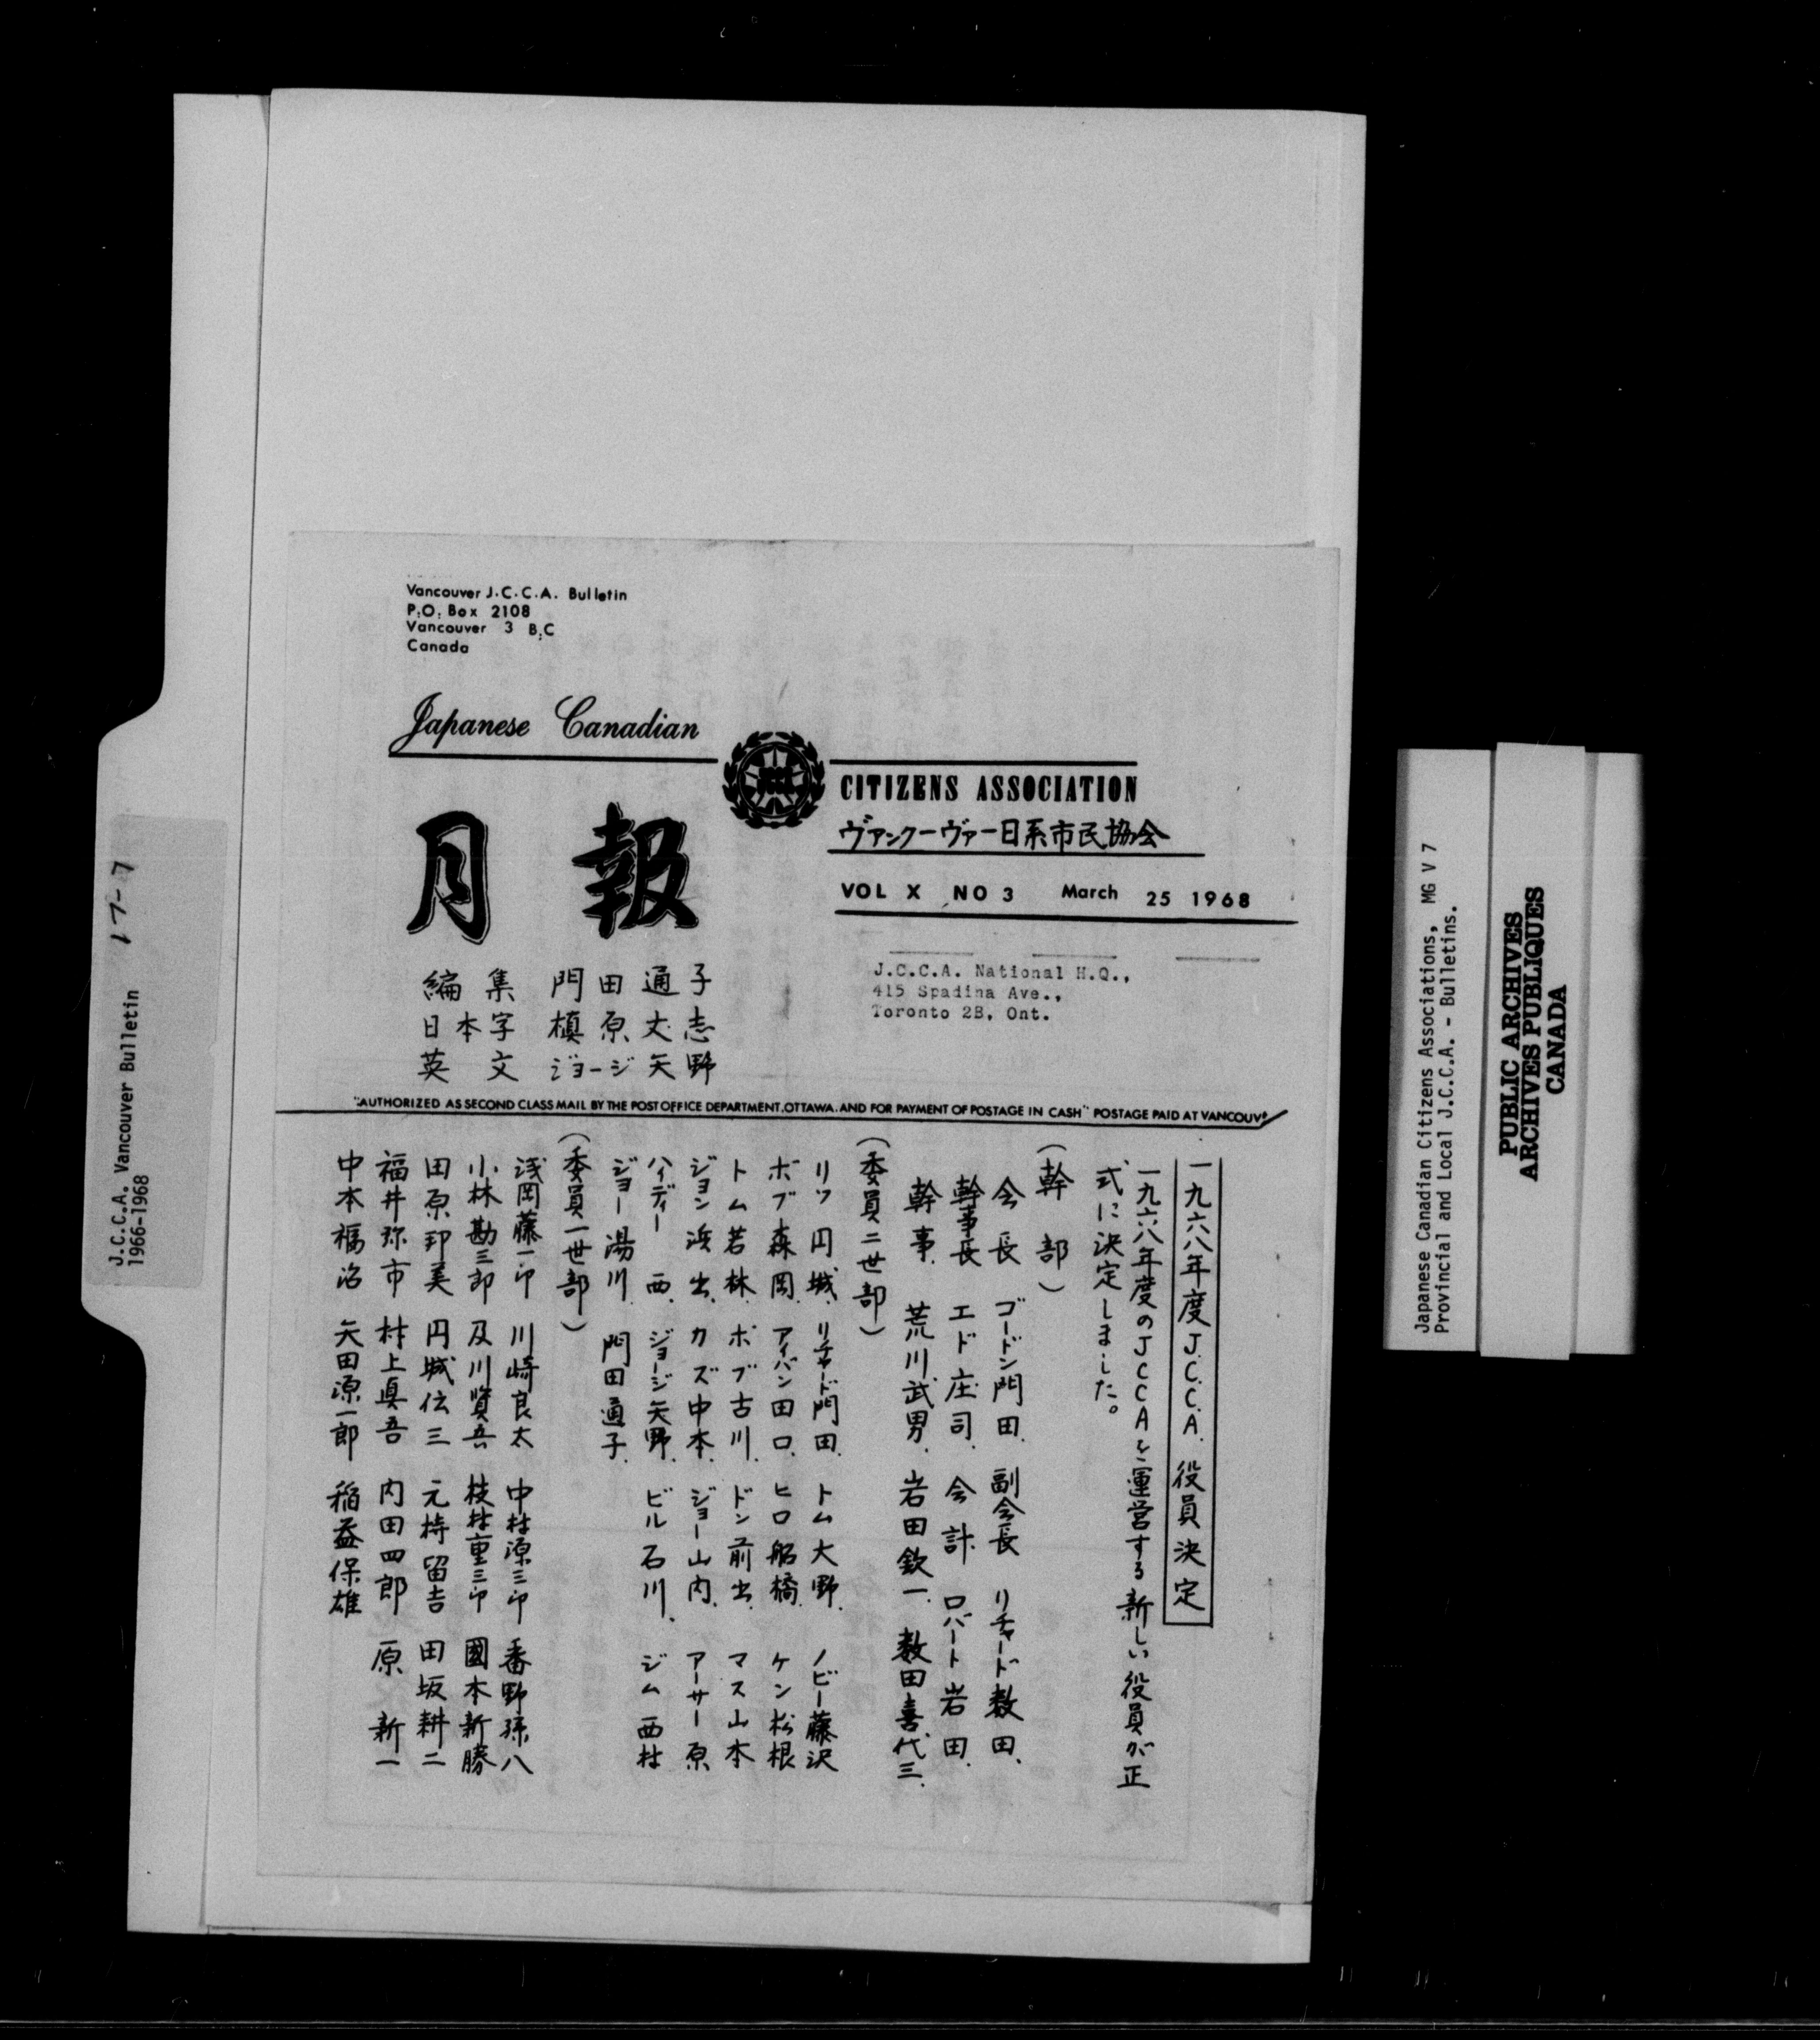 Vancouver J.C.C.A. Bulletin
P.O. Box 2108
Vancouver 3 B.C
Canada
Japanese Canadian
CITIZENS ASSOCIATION
ヴァンクーヴァー日系市民協会
月報
VOL X NO 3 March 25 1968
編集 門田通子
日本字 槙原丈志
英文 ジョージ矢野
J.C.C.A. National H.Q.,
415 Spadina Ave.,
Toronto 2B, Ont.
"AUTHORIZED AS SECOND CLASS MAIL BY THE POST OFFICE DEPARTMENT, OTTAWA. AND FOR PAYMENT OF POSTAGE IN CASH" POSTAGE PAID AT VANCOUV
一九六八年度J.C.C.A.役員決定
一九六八年度のJCCAを運営する新しい役員が正
式に決定しました。
(幹部)
会長 ゴードン門田、副会長 リチャード数田、
幹事長 エド庄司、会計 ロバート岩田、
幹事、荒川武男、岩田欽一、数田喜代三、
(委員二世部)
リツ円城、リチャード門田、トム大野、ノビー藤沢
ボブ森岡、アイバン田口、ヒロ船橋、ケン松根
トム若林、ボブ古川、ドン前出、マス山本
ジョン浜出、カズ中本、ジョー山内、アーサー原
ハイディー西、ジョージ矢野、ビル石川、ジム西村
ジョー湯川、門田通子、
(委員一世部)
浅岡藤一郎 川崎良太 中村源三郎 番野孫八
小林勘三郎 及川賢吾 枝村重三郎 國本新勝
田原卯美 円城伝三 元持留吉 田坂耕二
福井弥市 村上真吾 内田四郎 原新一
中本福治 矢田源一郎 稲益保雄
J.C.C.A. Vancouver Bulletin 17-7
1966-1968
Japanese Canadian Citizens Associations, MG V 7
Provincial and Local J.C.C.A. - Bulletins.
PUBLIC ARCHIVES
ARCHIVES PUBLIQUES
CANADA